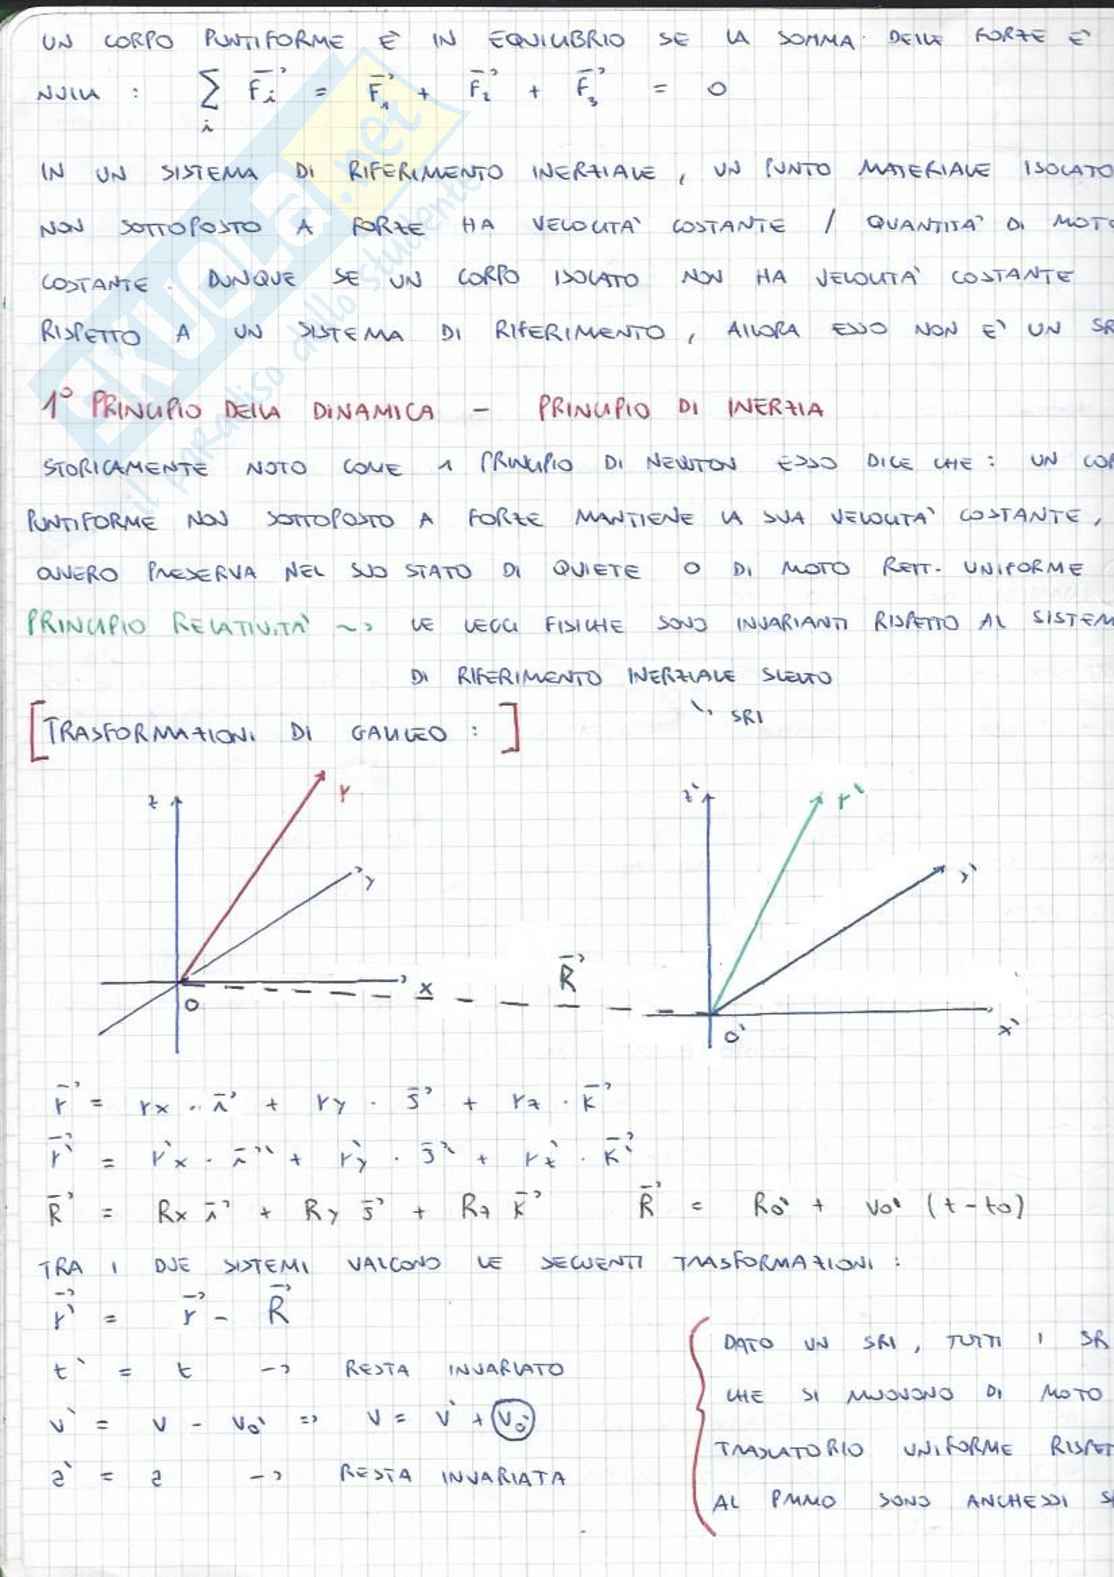 UN CORPO PUNTIFORME È IN EQUILIBRIO SE LA SOMMA DELLE FORZE È
NULLA : ∑i F⃗i = F⃗1 + F⃗2 + F⃗3 = 0
IN UN SISTEMA DI RIFERIMENTO INERZIALE , UN PUNTO MATERIALE ISOLATO
NON SOTTOPOSTO A FORZE HA VELOCITA' COSTANTE / QUANTITA' DI MOTO
COSTANTE. DUNQUE SE UN CORPO ISOLATO NON HA VELOCITA' COSTANTE
RISPETTO A UN SISTEMA DI RIFERIMENTO , ALLORA ESSO NON E' UN SR
1° PRINCIPIO DELLA DINAMICA - PRINCIPIO DI INERZIA
STORICAMENTE NOTO COME 1 PRINCIPIO DI NEWTON ESSO DICE CHE : UN COR
PUNTIFORME NON SOTTOPOSTO A FORZE MANTIENE LA SUA VELOCITA' COSTANTE ,
OVVERO PRESERVA NEL SUO STATO DI QUIETE O DI MOTO RETT. UNIFORME
PRINCIPIO RELATIVITA' ~> LE LEGGI FISICHE SONO INVARIANTI RISPETTO AL SISTEM
DI RIFERIMENTO INERZIALE SCELTO
SRI
[TRASFORMAZIONI DI GALILEO : ]
z r y x O
R⃗
z' r' y' x' O'
r⃗ = rx · i⃗ + ry · j⃗ + rz · k⃗
r⃗' = r'x · i⃗' + r'y · j⃗' + r'z · k⃗'
R⃗ = Rx i⃗ + Ry j⃗ + Rz k⃗ R⃗ = Ro' + vo' (t - to)
TRA I DUE SISTEMI VALGONO LE SEGUENTI TRASFORMAZIONI :
r⃗' = r⃗ - R⃗
t' = t -> RESTA INVARIATO
v' = v - vo' => v = v' + vo'
a' = a -> RESTA INVARIATA
DATO UN SRI , TUTTI I SR
CHE SI MUOVONO DI MOTO
TRASLATORIO UNIFORME RISPET
AL PRIMO SONO ANCHESSI S
SKUOLA.net
il paradiso dello studente